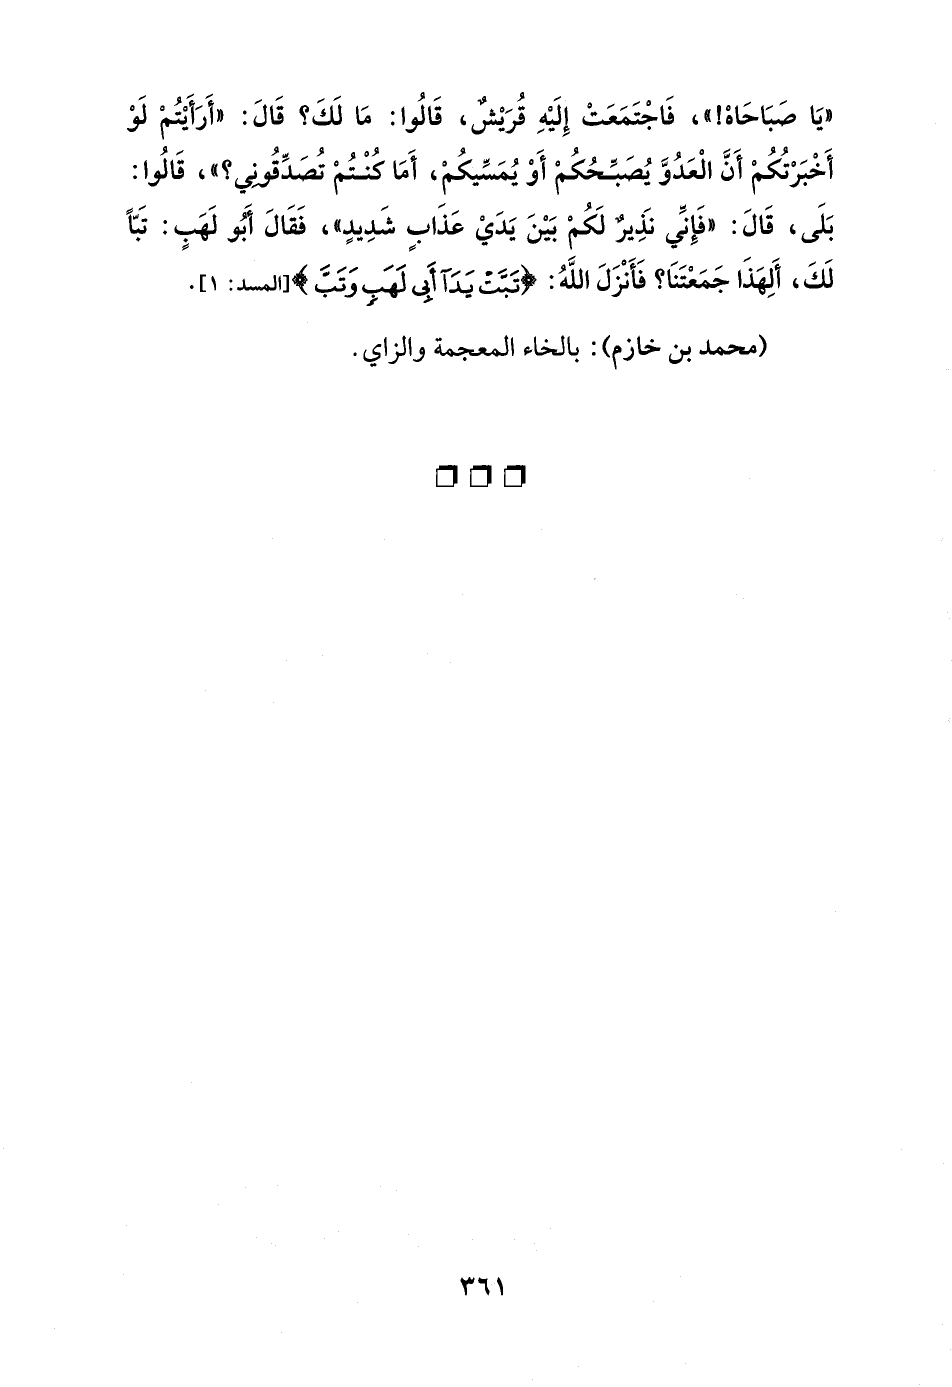 «يَا صَبَاحَاهْ!»، فَاجْتَمَعَتْ إِلَيْهِ قُرَيْشٌ، قَالُوا: مَا لَكَ؟ قَالَ: «أَرَأَيْتُمْ لَوْ
أَخْبَرْتُكُمْ أَنَّ الْعَدُوَّ يُصَبِّحُكُمْ أَوْ يُمَسِّيكُمْ، أَمَا كُنْتُمْ تُصَدِّقُونِي؟»، قَالُوا:
بَلَى، قَالَ: «فَإِنِّي نَذِيرٌ لَكُمْ بَيْنَ يَدَيْ عَذَابٍ شَدِيدٍ»، فَقَالَ أَبُو لَهَبٍ: تَبّاً
لَكَ، أَلِهَذَا جَمَعْتَنَا؟ فَأَنْزَلَ اللَّهُ: ﴿تَبَّتْ يَدَآ أَبِى لَهَبٍ وَتَبَّ﴾[المسد: ١].
(محمد بن خازم): بالخاء المعجمة والزاي.
٣٦١